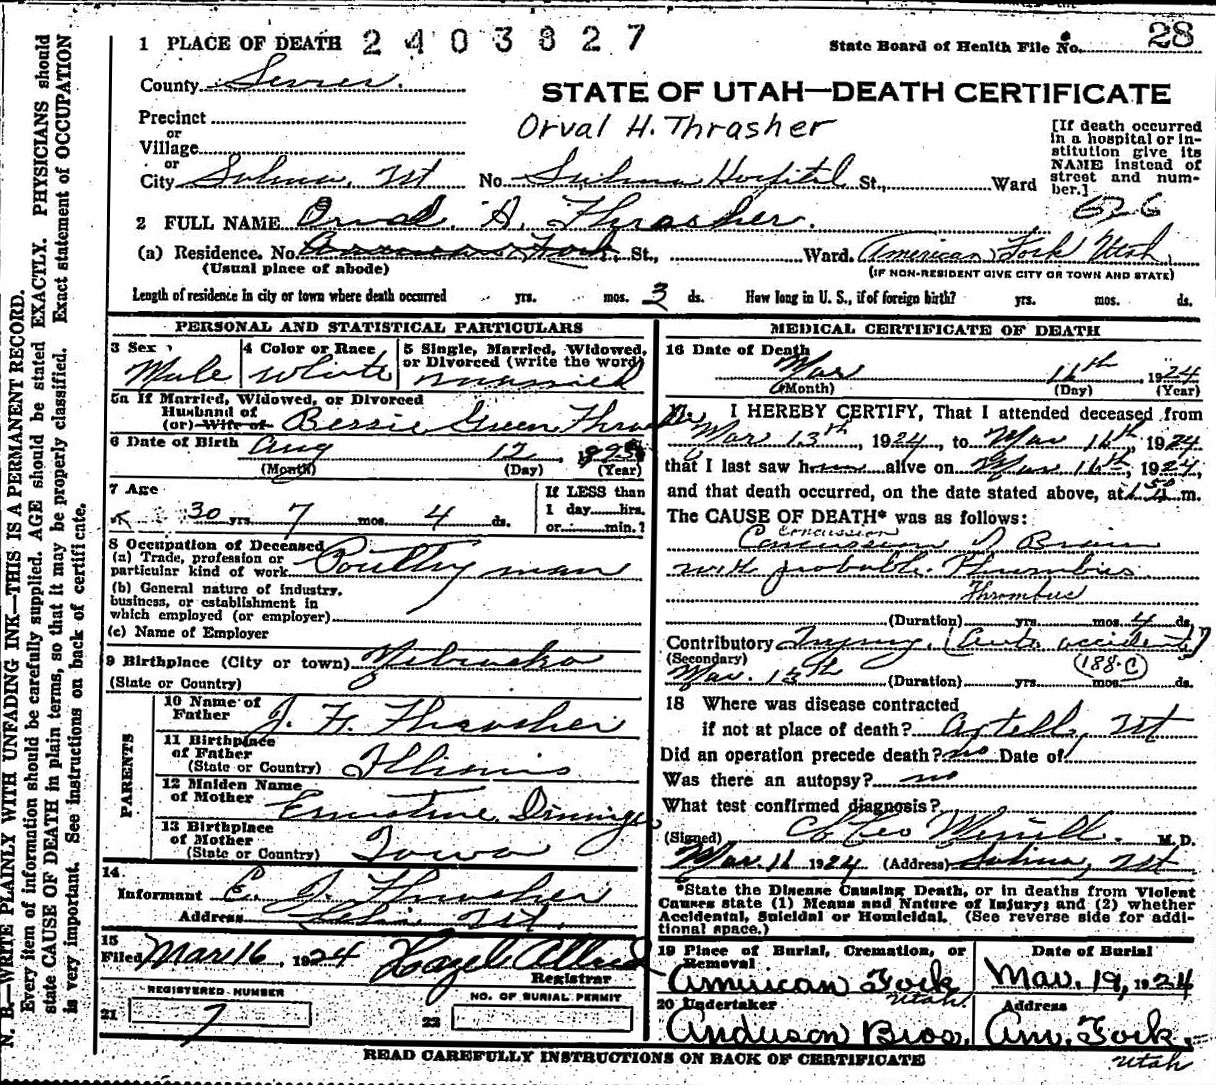 1 PLACE OF DEATH 2403827
State Board of Health File No. 28
County Sevier.
STATE OF UTAH—DEATH CERTIFICATE
Precinct
or
Village
or
City Salina, Ut No. Salina Hospital St., Ward
Orval H. Thrasher
[If death occurred
in a hospital or in-
stitution give its
NAME instead of
street and num-
ber.]
626
2 FULL NAME Orval. H. Thrasher.
(a) Residence. No. American Fork St., Ward. American Fork Utah
(Usual place of abode) (IF NON-RESIDENT GIVE CITY OR TOWN AND STATE)
Length of residence in city or town where death occurred yrs. mos. 3 ds. How long in U. S., if of foreign birth? yrs. mos. ds.
PERSONAL AND STATISTICAL PARTICULARS
3 Sex 4 Color or Race 5 Single, Married, Widowed,
or Divorced (write the word)
Male White Married
5a If Married, Widowed, or Divorced
Husband of
(or) Wife of Bessie Green Thrasher
6 Date of Birth Aug 12
(Month) (Day) (Year)
7 Age
30 yrs. 7 mos. 4 ds.
If LESS than
1 day......hrs.
or......min.?
8 Occupation of Deceased
(a) Trade, profession or
particular kind of work Poultry man
(b) General nature of industry.
business, or establishment in
which employed (or employer)
(c) Name of Employer
9 Birthplace (City or town) Nebraska
(State or Country)
PARENTS
10 Name of
Father J. H. Thrasher
11 Birthplace
of Father
(State or Country) Illinois
12 Maiden Name
of Mother Ernestine
13 Birthplace
of Mother
(State or Country) Iowa
14.
Informant E. J. Thrasher
Address
15
Filed Mar 16, 1924 Hazel Allred
Registrar
REGISTERED NUMBER NO. OF BURIAL PERMIT
21 7 22
MEDICAL CERTIFICATE OF DEATH
16 Date of Death
Mar 16th, 1924
(Month) (Day) (Year)
I HEREBY CERTIFY, That I attended deceased from
Mar 13th, 1924, to Mar 16th, 1924
that I last saw him alive on Mar 16th, 1924,
and that death occurred, on the date stated above, at m.
The CAUSE OF DEATH* was as follows:
Concussion
Concussion of Brain
with probable. Thrombus
Thrombus
(Duration) yrs. mos. 4 ds.
Contributory Injury. (Auto accident)
(Secondary) (188-C)
Mar. 13th (Duration) yrs. mos. ds.
18 Where was disease contracted
if not at place of death? Axtell, Ut
Did an operation precede death? no Date of
Was there an autopsy? no
What test confirmed diagnosis?
(Signed) Leo Merrill. M. D.
Mar. 16 1924 (Address) Salina, Ut
*State the Disease Causing Death, or in deaths from Violent
Causes state (1) Means and Nature of Injury; and (2) whether
Accidental, Suicidal or Homicidal. (See reverse side for addi-
tional space.)
19 Place of Burial, Cremation, or
Removal
American Fork
Utah.
Date of Burial
Mar. 19, 1924
20 Undertaker
Anderson Bros.
Address
Am. Fork.
Utah
READ CAREFULLY INSTRUCTIONS ON BACK OF CERTIFICATE
N. B.—WRITE PLAINLY WITH UNFADING INK—THIS IS A PERMANENT RECORD.
Every item of information should be carefully supplied. AGE should be stated EXACTLY. PHYSICIANS should
state CAUSE OF DEATH in plain terms, so that it may be properly classified. Exact statement of OCCUPATION
is very important. See instructions on back of certificate.